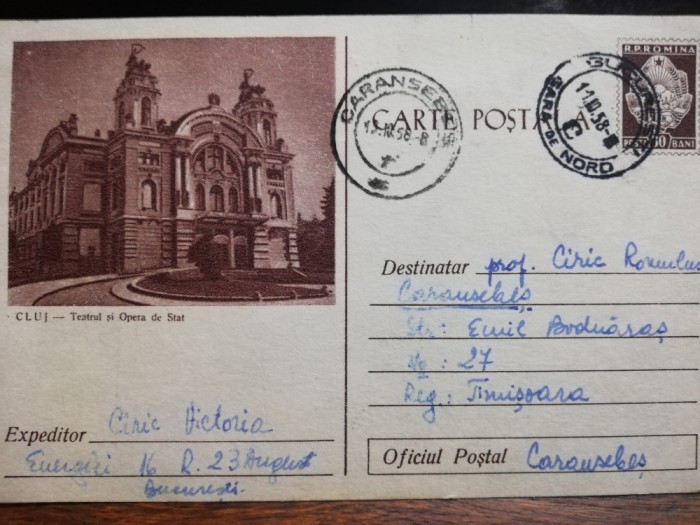 CARTE POȘTALĂ
R.P.ROMINA
POSTA
BANI
CARANSEBEȘ
58-8
BUCUREȘTI
11.III.58
GARA DE NORD
CLUJ — Teatrul și Opera de Stat
Destinatar prof. Ciric Romulus
Caransebeș
Str: Emil Bodnăraș
No: 27
Reg: Timișoara
Oficiul Poștal Caransebeș
Expeditor Ciric Victoria
Energiei 16 R. 23 August
București.